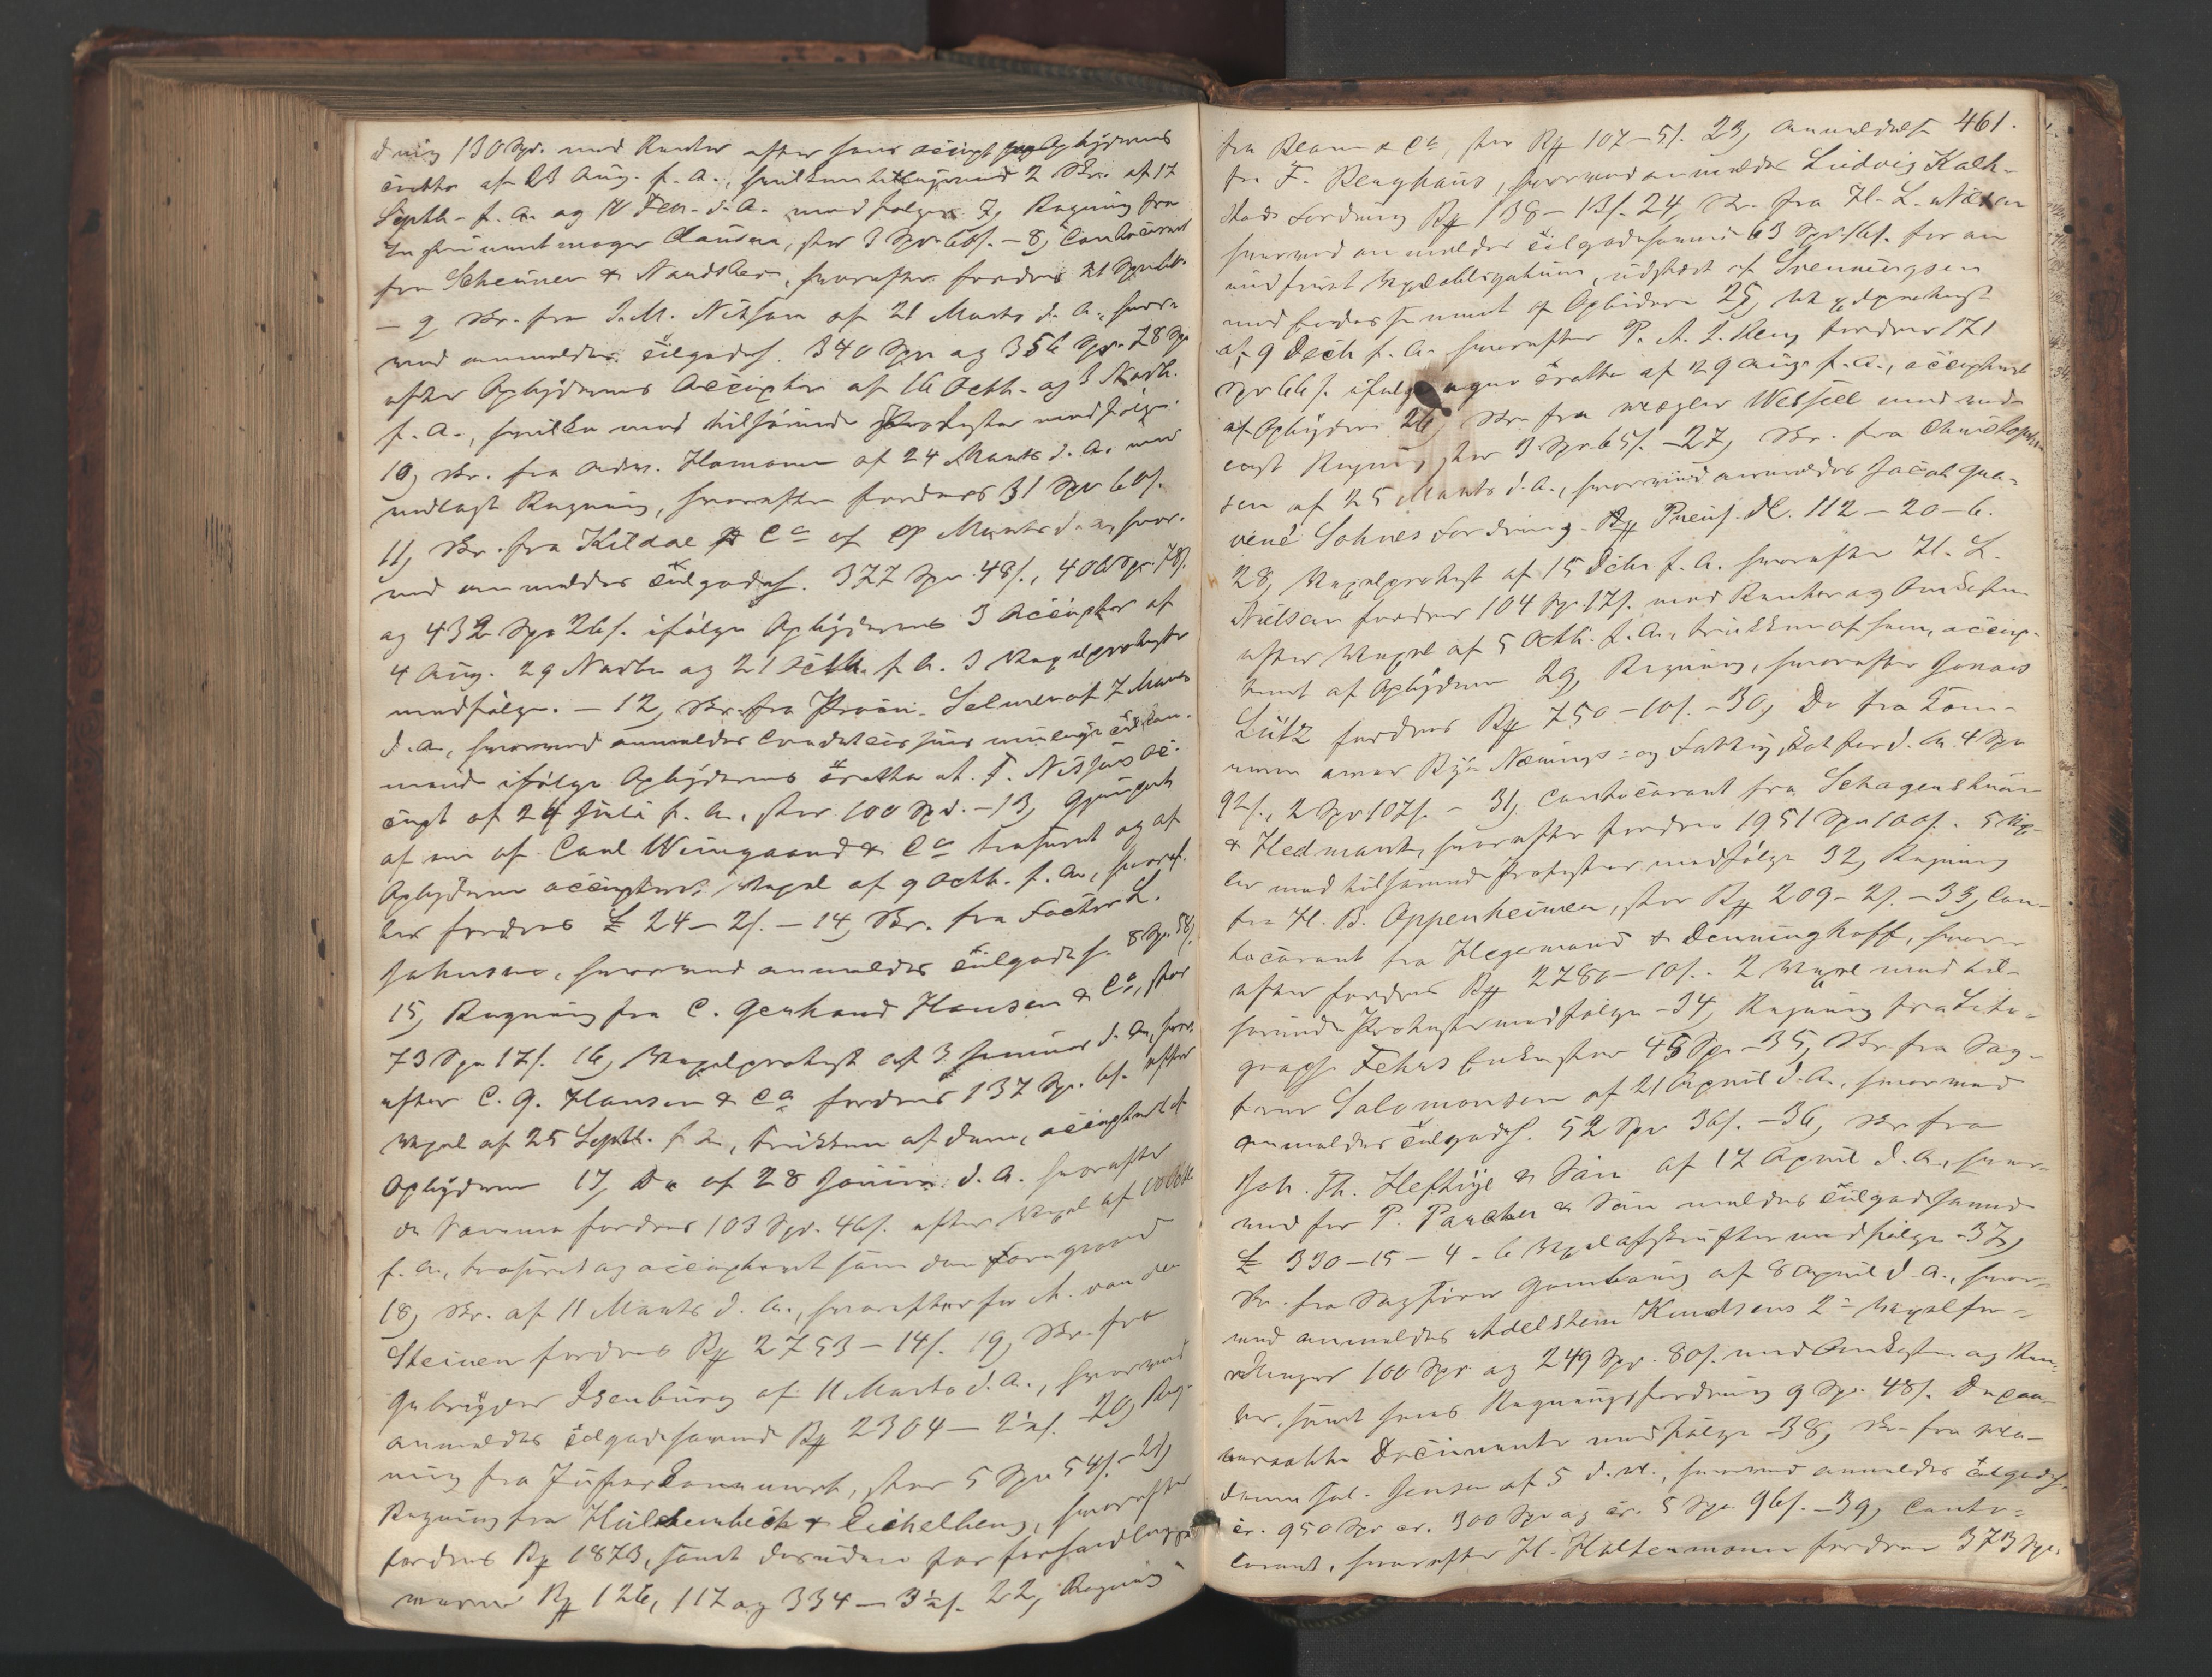 dring 130 Spd. med Renter efter hans accept paa Opbyderens
tratte af 23 Aug. f. A., hvilken tilligemed 2 Skr. af 17
Septb. f. A. og 10 Febr. d. A. medfølger 7, Regning fra
Instrumentmager Clausen, stor 3 Spd 60 s. - 8, Contocourant
fra Scheunen & , hvorefter fordres 21 Spd
- 9, Skr. fra J. M. Nilsson af 21 Marts d. A., hvor-
ved anmeldes tilgodeh. 340 Spd og 356 Spd 78 s
efter Opbyderens Accepter af 16 Octb. og 3 Novb.
f. A., hvilke med tilhørende Protester medfølge.
10, Skr. fra Homann af 24 Marts d. A. med
vedlagt Regning, hvorefter fordres 31 Spd 60 s.
11, Skr. fra Kildal & Co af Marts d. A., hvor-
ved anmeldes tilgodeh. 377 Spd. 48 s., 406 Spd. 78 s.
og 432 Spd 26 s. ifølge Opbyderens 3 Accepter af
4 Aug. 29 Novbr og 21 Octb. f. A. 3 Vexelprotester
medfølge. - 12, Skr. fra Procur. Selmer af 7 Marts
d. A., hvorved anmeldes
ifølge Opbyderens tratte at ac-
cept af 24 Juli f. A., stor 100 Spd. - 13, Gjenpart
af en af Carl Weingaard & Co trasseret og af
Opbyderen accepteret Vexel af 9 Octb. f. A., hvoref-
ter fordres £ 24 - 2 s. - 14, Skr. fra Factor L.
Johnsen, hvorved anmeldes tilgodeh. 8 Spd. 58 s.
15, Regning fra C. Gerhard Hansen & Co, stor
73 Spd 17 s. 16, Vexelprotest af 3 Januar d. A., hvor-
efter C. G. Hansen & Co fordrer 137 Spd. 6 s. efter
Vexel af 25 Septb. f. A., trukken af dem, accepteret af
Opbyderen 17, Do af 28 Januar d. A. hvorefter
de Samme fordrer 103 Spd. 46 s. efter Vexel af 10 Octb
f. A., trasseret og accepteret som den Foregaaende
18, Skr. af 11 Marts d. A., hvorefter for A. von den
Steinen fordres R# 2753 - 14 s. 19, Skr. fra
Gebrüder Isenburg af 11 Marts d. A., hvorved
anmeldes tilgodehavende R# 2304 - 2½ s. 20, Reg-
ning fra , stor 5 Spd 54 s. - 21,
Regning fra Hülsenbeck & Eichelberg, hvorefter
fordres R# 1873, samt desuden for forhandlings
varer R# 126, 117 og 334 - 3½ s. 22, Regning
461.
fra Beam & Co, stor R# 107 - 5 s. 23, Anmeldelse
fra F. Berghaus, hvorved anmeldes Ludvig Kalk-
Fordring R# 138 - 13 s. 24, Skr. fra H. L. Nielsen
hvorved anmeldes tilgodehavende 63 Spd 16 s. for en
indfriet , udstedt af Svenningsen
med Endossement af Opbyderen 25, Vexelprotest
af 9 Decbr f. A. hvorefter P. A. fordrer 171
Spd 66 s. ifølge egen tratte af 29 Aug. f. A., accepteret
af Opbyderen 26, Skr. fra Mægler Wessel med ved-
lagt Regning stor 3 Spd 65 s. - 27, Skr. fra Christophen-
sen af 25 Marts d. A., hvorved anmeldes Jacob
Sohnes Fordring R# Preus. Ct. 112 - 20 - 6.
28, Vexelprotest af 15 Decbr f. A. hvorefter H. L.
Nielsen fordrer 104 Spd. 17 s. med Renter og Omkostn.
efter Vexel af 5 Octb. f. A., trukken af ham, accep-
teret af Opbyderen 29, Regning, hvorefter Jonas
Lütz fordrer R# 750 - 10 s. - 30, Do fra Kæm-
neren over By- Nærings- og Fattigskat for d. A. 4 Spd
92 s., 2 Spd 107 s. - 31, Contocourant fra Schagenshusen
& Hedmark, hvorefter fordres 1951 Spd 100 s. 5 Vex-
ler med tilhørende Protester medfølge 32, Regning
fra H. B. Oppenheimer, stor R# 209 - 2 s. - 33, Con-
tocourant fra Hegemand & Denninghoff, hvor-
efter fordres R# 2780 - 10 s. 2 Vexel med til-
hørende Protester medfølge - 34, Regning fra Litho-
graph Fehrs Enke stor 45 Spd - 35, Skr. fra Sag-
fører Salomonsen af 21 April d. A., hvorved
anmeldes tilgodeh. 52 Spd 36 s. - 36, Skr. fra
Joh. Th. Heftye & Søn af 17 April d. A., hvor-
ved for P. Parcher & Søn meldes tilgodehavende
£ 330 - 15 - 4 - 6 Vexelafskrifter medfølge - 37,
Skr. fra Sagfører Gamborg af 8 April d. A., hvor-
ved anmeldes Adelsteen Knudsens 2de Vexelfor-
dringer 100 Spd. og 249 Spd. 80 s. med Omkostn. og Ren-
ter, samt hans Regningsfordring 9 Spd. 48 s. Depo-
nerede Documenter medfølge 38, Skr. fra Ma-
dame Jensen af 5 d. M., hvorved anmeldes tilgodeh.
cr. 950 Spd cr. 300 Spd og cr. 5 Spd 96 s. - 39, Conto-
courant, hvorefter H. Holtermann fordrer 373 Spd.